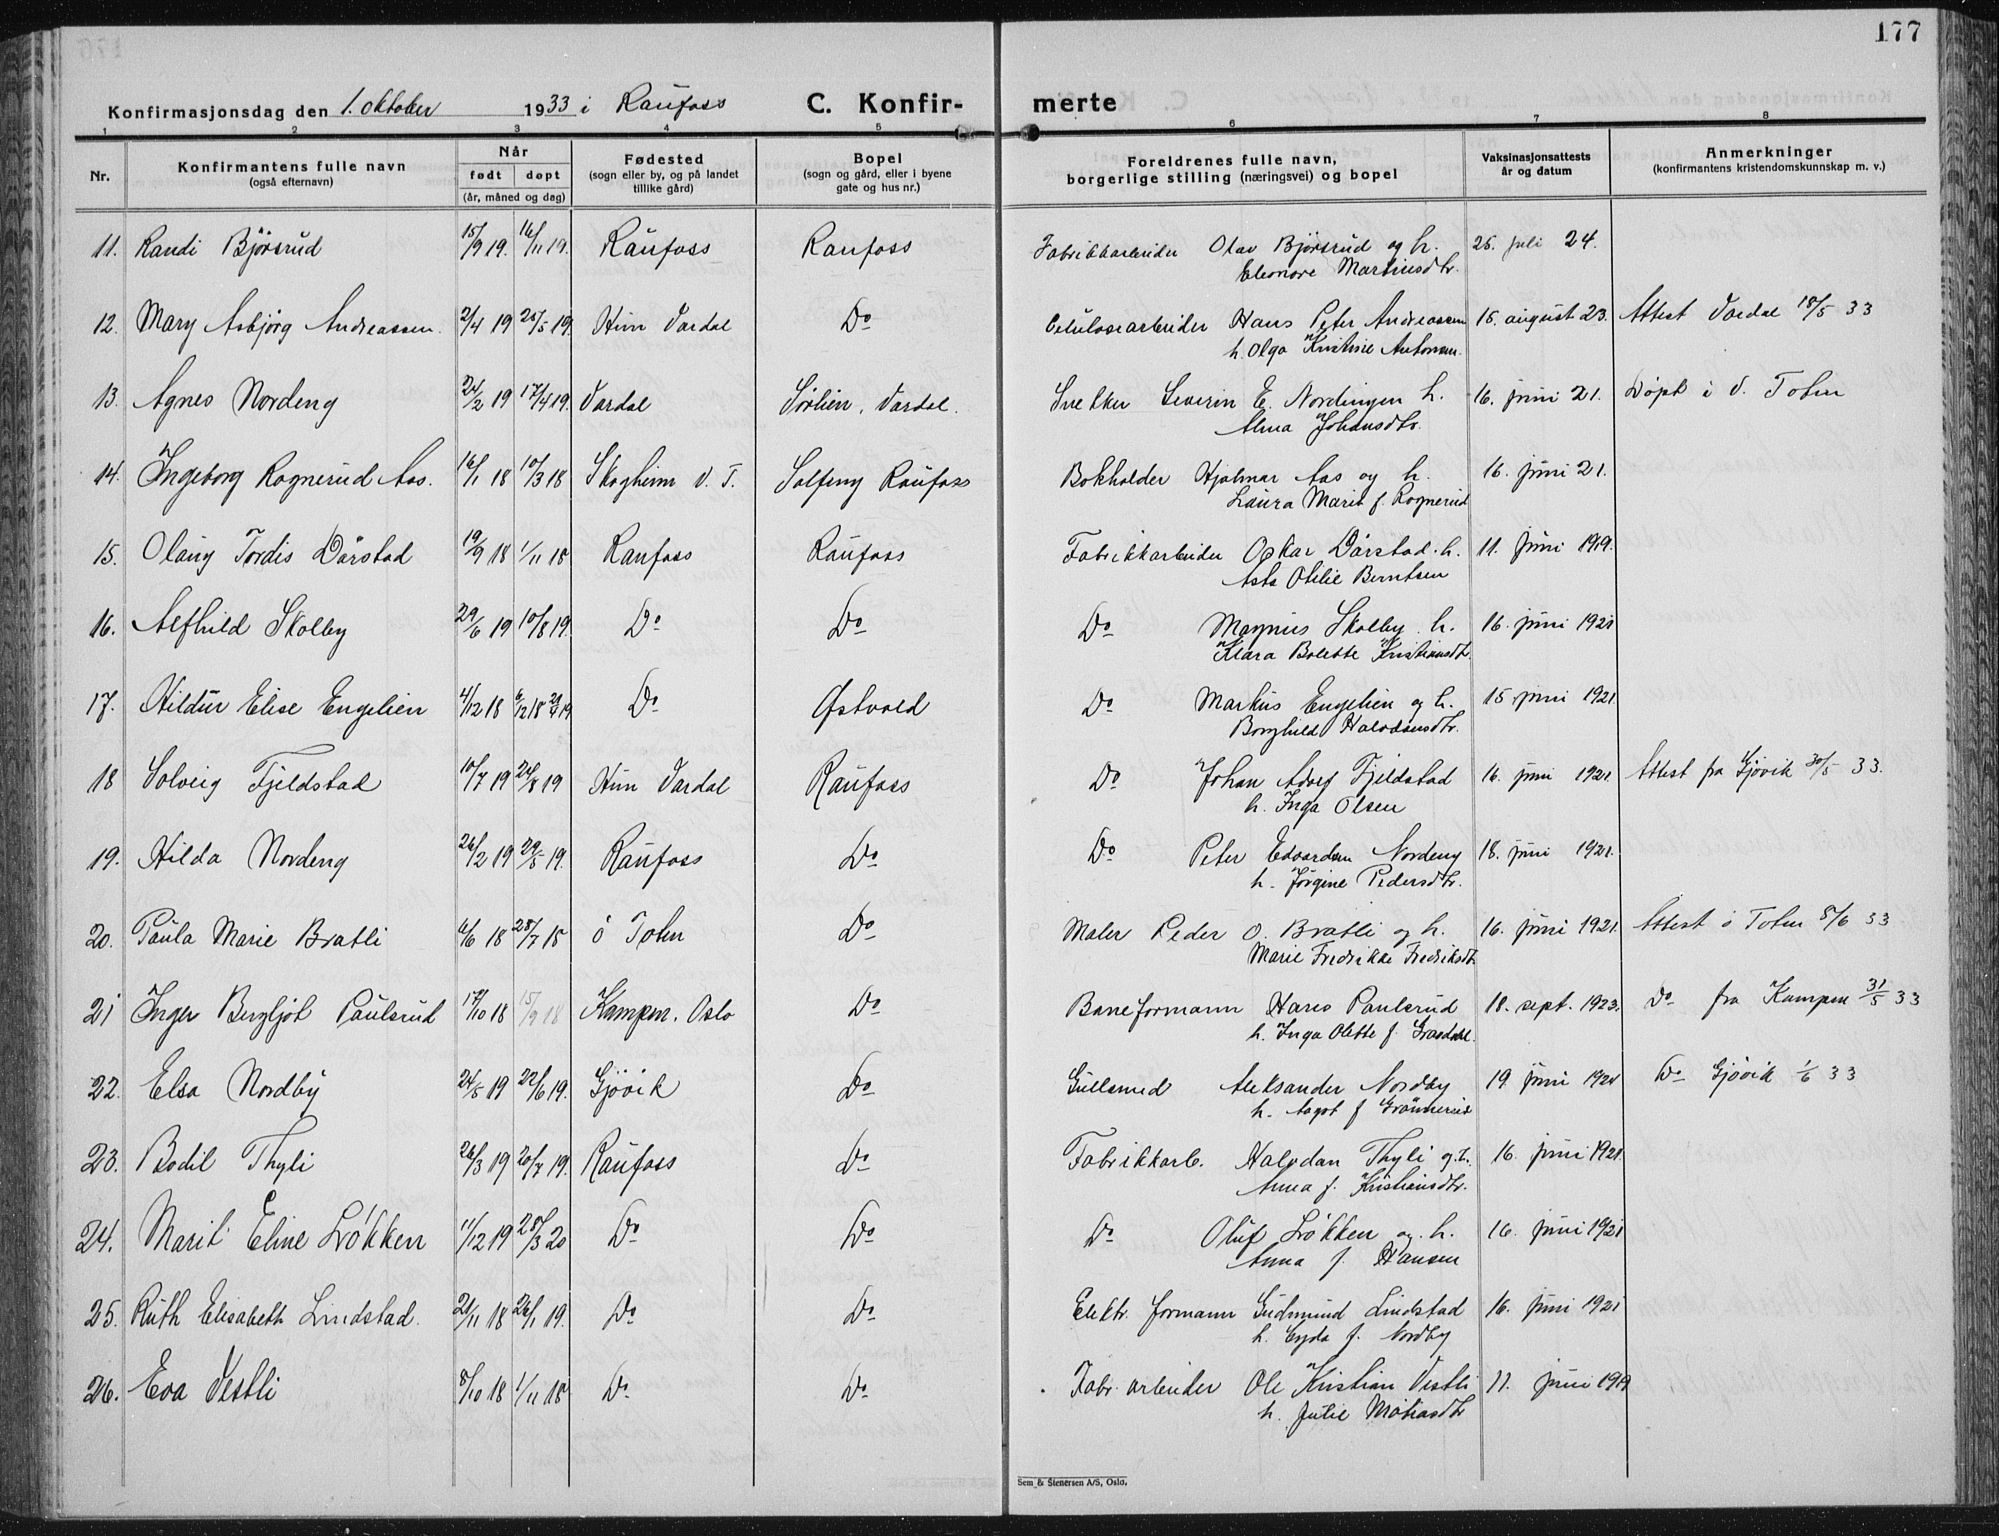 177
Konfirmasjonsdag den 1. oktober 1933 i Raufoss C. Konfirmerte
1 2 3 4 5 6 7 8
Nr. Konfirmantens fulle navn (også efternavn) Når født døpt (år, måned og dag) Fødested (sogn eller by, og på landet tillike gård) Bopel (sogn og gård, eller i byene gate og hus nr.) Foreldrenes fulle navn, borgerlige stilling (næringsvei) og bopel Vaksinasjonsattests år og datum Anmerkninger (konfirmantens kristendomskunnskap m. v.)
11. Randi Björsrud 15/9 19. 16/11 19. Raufoss Raufoss Fabrikkarbeider Olav Björsrud og h. 25. juli 24.
Eleonore Martinusdtr.
12. Mary Asbjörg Andreassen. 2/4 19 25/5 19. Hun Vardal Do Celulosearbeider Hans Peter Andreassen 15. august 23. Attest Vardal 18/5 33
h. Olga Kristine Antonsen.
13. Agnes Nordeng 24/2 19 17/4 19. Vardal Sörlien, Vardal. Snekker Severin E. Nordengen h. 16. juni 21. Döpt i V. Toten
Alma Johansdtr.
14. Ingeborg Rognerud Aas. 16/1 18 10/3 18 Skogheim V. T. Solfeng Raufoss Bokholder Hjalmar Aas og h. 16. juni 21.
Laura Marie f. Rognerud
15. Olaug Tordis Dårstad 19/9 18 1/11 18 Raufoss Raufoss Fabrikkarbeider Oskar Dårstad. h. 11. juni 1919.
Asta Otilie Berntsen
16. Alfhild Skolby 29/6 19 10/8 19. Do Do Do Magnus Skolby h. 16. juni 1921
Klara Bolette Kristiansdtr.
17. Hildur Elise Engelien 4/12 18 6/12 18 29/4 19 Do Østvold Do Markus Engelien og h. 15 juni 1921
Borghild Halvdansdtr.
18 Solveig Fjeldstad 10/7 19 24/8 19 Hun Vardal Raufoss Do Johan Adolf Fjeldstad 16. juni 1921 Attest fra Gjövik 30/5 33.
h. Inga Olsen
19. Hilda Nordeng 26/2 19 29/5 19. Raufoss Do Do Peter Edvardsen Nordeng 18. juni 1921.
h. Jørgine Pedersdtr.
20. Paula Marie Bratli 6/6 18 28/7 18 ö Toten Do Maler Peder O. Bratli og h. 16. juni 1921. Attest ö Toten 8/6 33
Marie Fredrikke Fredriksdtr.
21 Inger Bergljot Paulsrud 17/10 18 15/9 18 Kampen. Oslo Do Baneformann Hans Paulsrud 18. sept. 1923. Do fra Kampen 31/5 33
h. Inga Olette f.
22. Elsa Nordby 24/5 19 22/6 19. Gjövik Do Gullsmed Aleksander Nordby 19 juni 1921 Do Gjövik 1/6 33
h. Aagot f
23. Bodil Thyli 26/3 19 20/7 19. Raufoss Do Fabrikkarb. Halvdan Thyli og h. 16. juni 1921
Anna f. Kristiansdtr.
24. Marit Eline Lökken 11/12 19 28/3 20 Do Do Do Oluf Lökken og. h. 16. juni 1921
Anna f. Hansen
25. Ruth Elisabeth Lindstad. 21/11 18 26/1 19. Do Do Elektr. formann Gudmund Lindstad 16. juni 1921
h. Gyda f. Nordby
26. Eva Vestli 8/10 18 1/11 18 Do Do Fabr. arbeider Ole Kristian Vestli 11. juni 1919
h. Julie Matiasdtr
Sem & Stenersen A/S, Oslo.